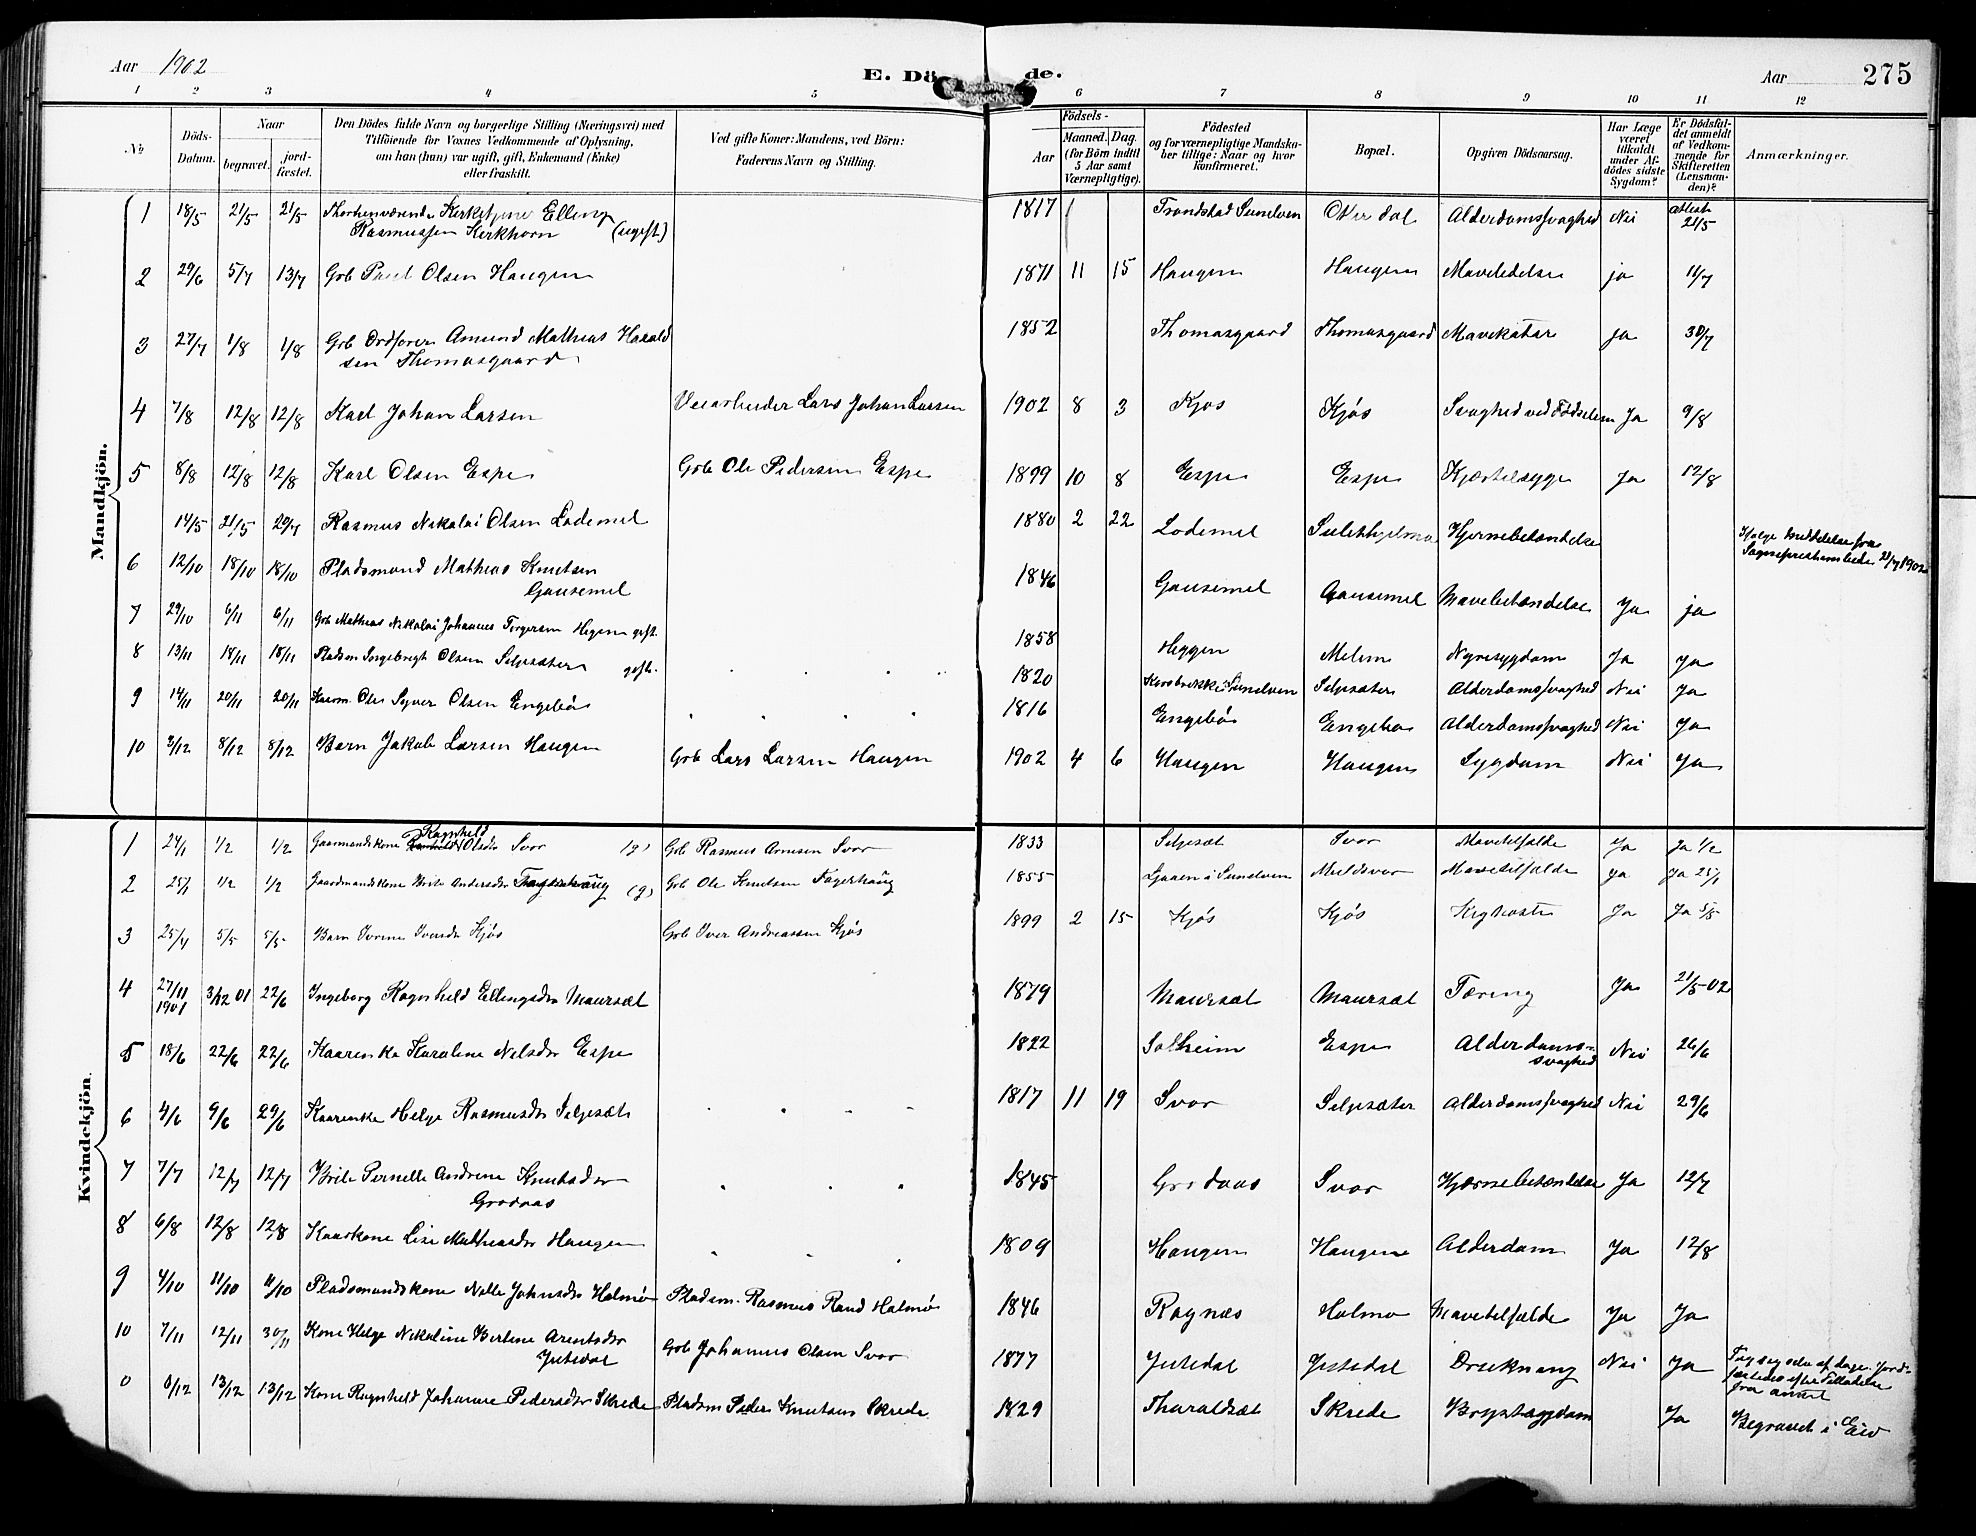 Aar 1902
E. Dö de.
Aar 275
1 2 3 4 5 6 7 8 9 10 11 12
№
Döds-Datum.
Naar
begravet.
jord-fæstet.
Den Dödes fulde Navn og borgerlige Stilling (Næringsvei) med
Tilföiende for Voxnes Vedkommende af Oplysning,
om han (hun) var ugift, gift, Enkemand (Enke)
eller fraskilt.
Ved gifte Koner: Mandens, ved Börn:
Faderens Navn og Stilling.
Födsels-
Aar
Maaned. Dag.
(for Börn indtil
5 Aar samt
Værnepligtige).
Födested
og for værnepligtige Mandska-
ber tillige: Naar og hvor
konfirmeret.
Bopæl.
Opgiven Dödsaarsag.
Har Læge
været
tilkaldt
under Af-
dödes sidste
Sygdom?
Er Dödsfal-
det anmeldt
af Vedkom-
mende for
Skifteretten
(Lensman-
den)?
Anmærkninger.
Mandkjön.
1 18/5 21/5 21/5 Kirketjener Elling Rasmussen Kirkhorn (ugift) 1817 Sunelven Alderdomssvaghed Nei 21/5
2 29/6 5/7 13/7 Grb Paul Olsen Haugen 1871 11 15 Haugen Haugen Mavelidelse ja 11/7
3 27/7 1/8 1/8 Grb Ordförer Amund Mathias Harald
sen Thomasgaard 1852 Thomasgaard Thomasgaard Mavekatar ja 30/7
4 7/8 12/8 12/8 Karl Johan Larsen Veiarbeider Lars Johan Larsen 1902 8 3 Kjos Kjös Svaghed ved Födselen Ja 9/8
5 8/8 12/8 12/8 Karl Olsen Espe Grb Ole Pedersen Espe 1899 10 8 Espe Espe Kjertelsyge Ja 12/8
14/5 21/5 29/7 Rasmus Nikolai Olsen Lødemel 1880 2 22 Lødemel Sulithjelma Hjernebetændelse
Sognepræstembede 21/7 1902
6 12/10 18/10 18/10 Pladsmand Mathias Knutsen
Gausemel 1846 Gausemel Gausemel Mavebetændelse Ja ja
7 29/10 6/11 6/11 Grb Mathias Nikolai Johannes Torgersen Heggen gift. 1858 Heggen Melem Nyresygdom Ja ja
8 13/11 18/11 18/11 Pladsm Ingebrigt Olsen Seljesæter gift. 1820 Sunelven Seljesæter Alderdomssvaghed Nei Ja
9 14/11 20/11 20/11 Kaarm. Ole Syver Olsen Engebös 1816 Engebös Engebø Alderdomssvaghed Nei Ja
10 3/12 8/12 8/12 Barn Jakob Larsen Haugen Grb Lars Larsen Haugen 1902 4 6 Haugen Haugen Sygdom Nei Ja
Kvindekjön.
1 24/1 1/2 1/2 Gaarmandskone Ragnhild Olsdr Svor (g) Grb Rasmus Arnesen Svor 1833 Seljesæt Svor Mavetilfælde Ja Ja 1/2
2 25/1 1/2 1/2 Gaardmandskone Brite Andersdr Fagerhaug (g) Grb Ole Knutsen Fagerhaug 1855 Ljøen i Sunelven Muldsvor Mavetilfælde ja Ja 25/1
3 25/4 5/5 5/5 Barn Ivrine Iversdr Kjös Grb Iver Andreassen Kjös 1899 2 15 Kjös Kjös Kighoste Ja Ja 5/5
4 27/11 1901 3/12 01 22/6 Ingeborg Ragnhild Ellingsdr Maursæt 1879 Maursæt Maursæt Tæring Ja 21/5-02
5 18/6 22/6 22/6 Kaarenke Karoline Nilsdr Espe 1822 Solheim Espe Alderdoms-
svaghed Nei 26/6
6 4/6 9/6 29/6 Kaarenke Helge Rasmusdr Seljesæt 1817 11 19 Svor Seljesæter Alderdomssvaghed Nei 29/6
7 7/7 12/7 12/7 Brite Pernelle Andrine Knutsdr
Grodaas 1845 Grodaas Svor Hjernebetændelse Ja 12/7
8 6/8 12/8 12/8 Kaarkone Lise Mathiasdr Haugen 1809 Haugen Haugen Alderdom Ja 12/8
9 4/10 11/10 11/10 Pladsmandskone Nille Johnsdr Holmø Pladsm. Rasmus Rand Holmø 1846 Ragnæs Holmø Mavetilfælde Ja Ja
10 7/11 12/11 30/11 Kone Helge Nikoline Bertine Arentsdr
Jytedal Grb Johannes Olsen Svor 1877 Jytedal Jytedal Drukning Nei Ja
0 6/12 13/12 13/12 Kone Ragnhild Johanne Pedersdr Skrede Pladsm Peder Knutsen Skrede 1829 Tharaldsæt Skrede Brystsygdom Ja Begravet i Eid